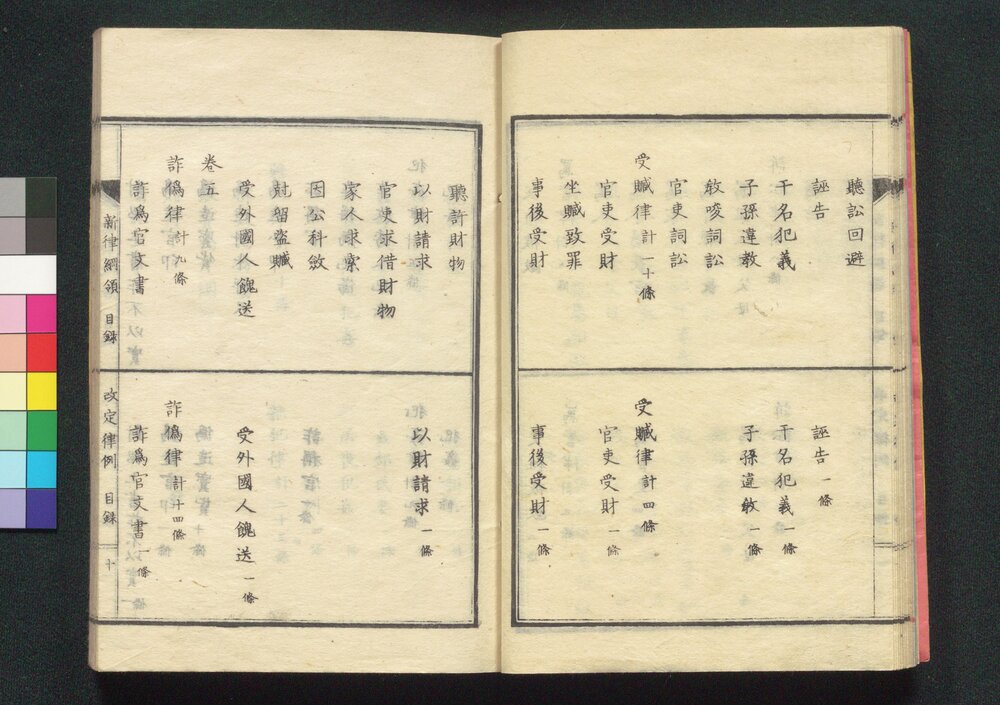 聽訟回避
誣告
干名犯義
子孫違教
教唆詞訟
官吏詞訟
受贓律 計一十條
官吏受財
坐贓致罪
事後受財
誣告 一條
干名犯義 一條
子孫違教 一條
受贓律 計四條
官吏受財 一條
事後受財 一條
聽許財物
以財請求
官吏求借財物
家人求索
因公科斂
尅留盜贓
受外國人餽送
卷五
詐僞律 計九條
詐爲官文書
以財請求 一條
受外國人餽送 一條
詐僞律 計十四條
詐爲官文書 一條
新律綱領 目録 改定律例 目録 十